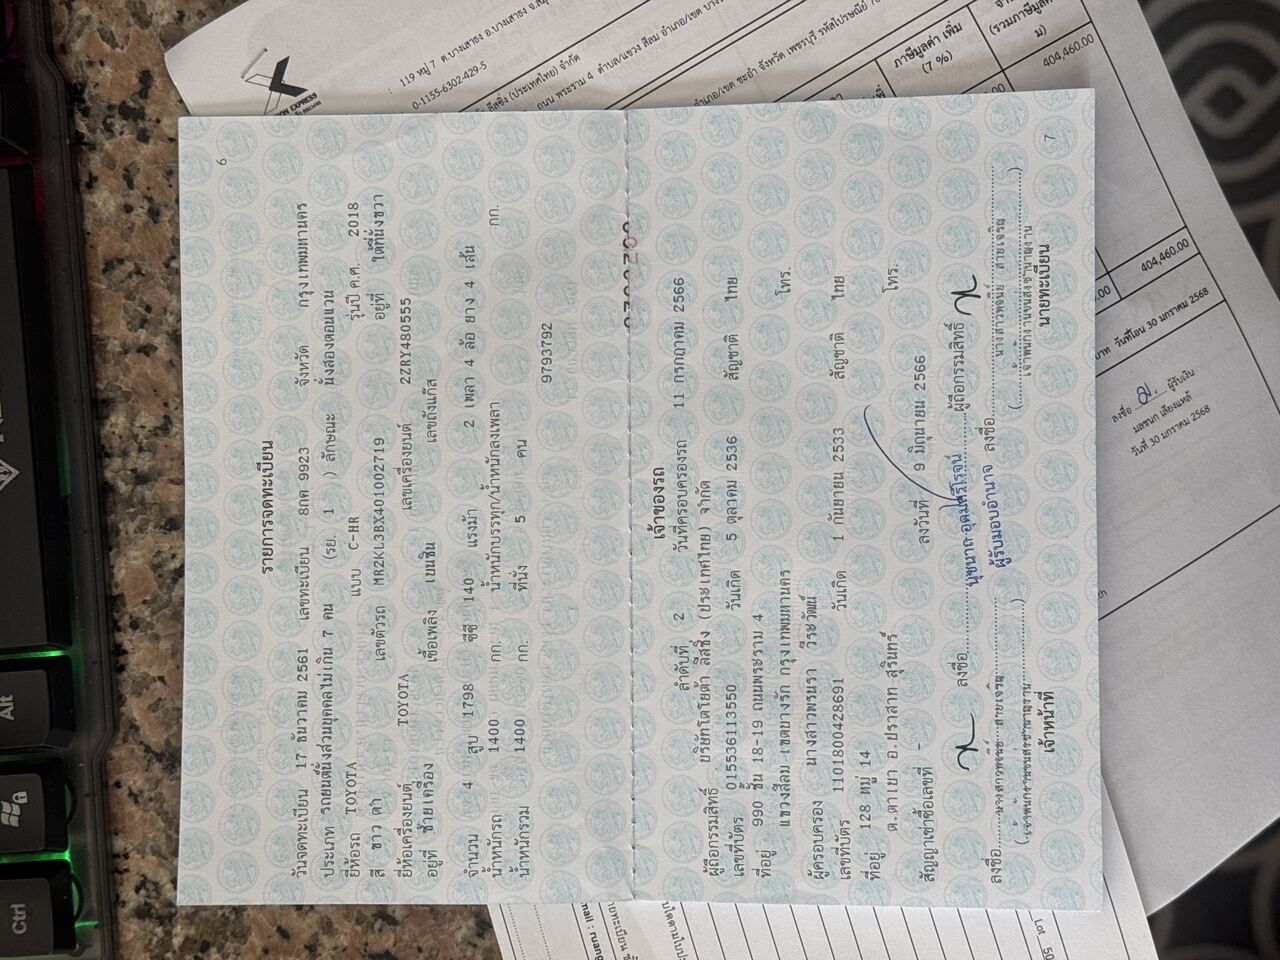 6
รายการจดทะเบียน
วันจดทะเบียน 17 ธันวาคม 2561 เลขทะเบียน 8กศ 9923 จังหวัด กรุงเทพมหานคร
ประเภท รถยนต์นั่งส่วนบุคคลไม่เกิน 7 คน (รย. 1 ) ลักษณะ นั่งสองตอนแวน
ยี่ห้อรถ TOYOTA แบบ C-HR รุ่นปี ค.ศ. 2018
สี ขาว ดำ เลขตัวรถ MR2KL3BX401002719 อยู่ที่ ใต้ที่นั่งขวา
ยี่ห้อเครื่องยนต์ TOYOTA เลขเครื่องยนต์ 2ZRY480555
อยู่ที่ ซ้ายเครื่อง เชื้อเพลิง เบนซิน เลขถังแก๊ส
จำนวน 4 สูบ 1798 ซีซี 140 แรงม้า 2 เพลา 4 ล้อ ยาง 4 เส้น
น้ำหนักรถ 1400 กก. น้ำหนักบรรทุก/น้ำหนักลงเพลา กก.
น้ำหนักรวม 1400 กก. ที่นั่ง 5 คน
9793792
เจ้าของรถ
ลำดับที่ 2 วันที่ครอบครองรถ 11 กรกฎาคม 2566
ผู้ถือกรรมสิทธิ์ บริษัทโตโยต้า ลีสซิ่ง (ประเทศไทย) จำกัด
เลขที่บัตร 015536113550 วันเกิด 5 ตุลาคม 2536 สัญชาติ ไทย
ที่อยู่ 990 ชั้น 18-19 ถนนพระราม 4
แขวงสีลม เขตบางรัก กรุงเทพมหานคร โทร.
ผู้ครอบครอง นางสาวพรนรา วีระวัฒน์
เลขที่บัตร 1101800428691 วันเกิด 1 กันยายน 2533 สัญชาติ ไทย
ที่อยู่ 128 หมู่ 14
ต.ตาเบา อ.ปราสาท สุรินทร์ โทร.
สัญญาเช่าซื้อเลขที่ - ลงวันที่ 9 มิถุนายน 2566
ลงชื่อ ผู้ถือกรรมสิทธิ์
ผู้รับมอบอำนาจ
ลงชื่อ ลงชื่อ
เจ้าหน้าที่ นายทะเบียน
7
119 หมู่ 7 ต.บางเสาธง อ.บางเสาธง
0-1155-6302-429-5
ลีสซิ่ง (ประเทศไทย) จำกัด
ถนน พระราม 4 ตำบล/แขวง สีลม อำเภอ/เขต
อำเภอ/เขต ชะอำ จังหวัด เพชรบุรี รหัสไปรษณีย์
ภาษีมูลค่า เพิ่ม
(7 %)
(รวมภาษีมูลค่า
404,460.00
404,460.00
บาท วันที่โอน 30 มกราคม 2568
ลงชื่อ ผู้รับเงิน
วันที่ 30 มกราคม 2568
Alt
Ctrl